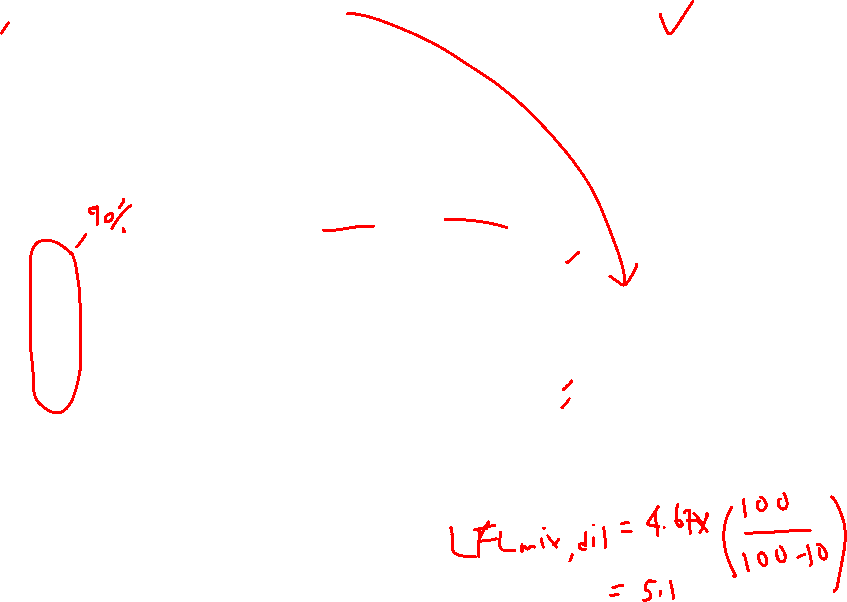 90%
LFLmix,dil = 4.67x (100/100-10)
= 5.1